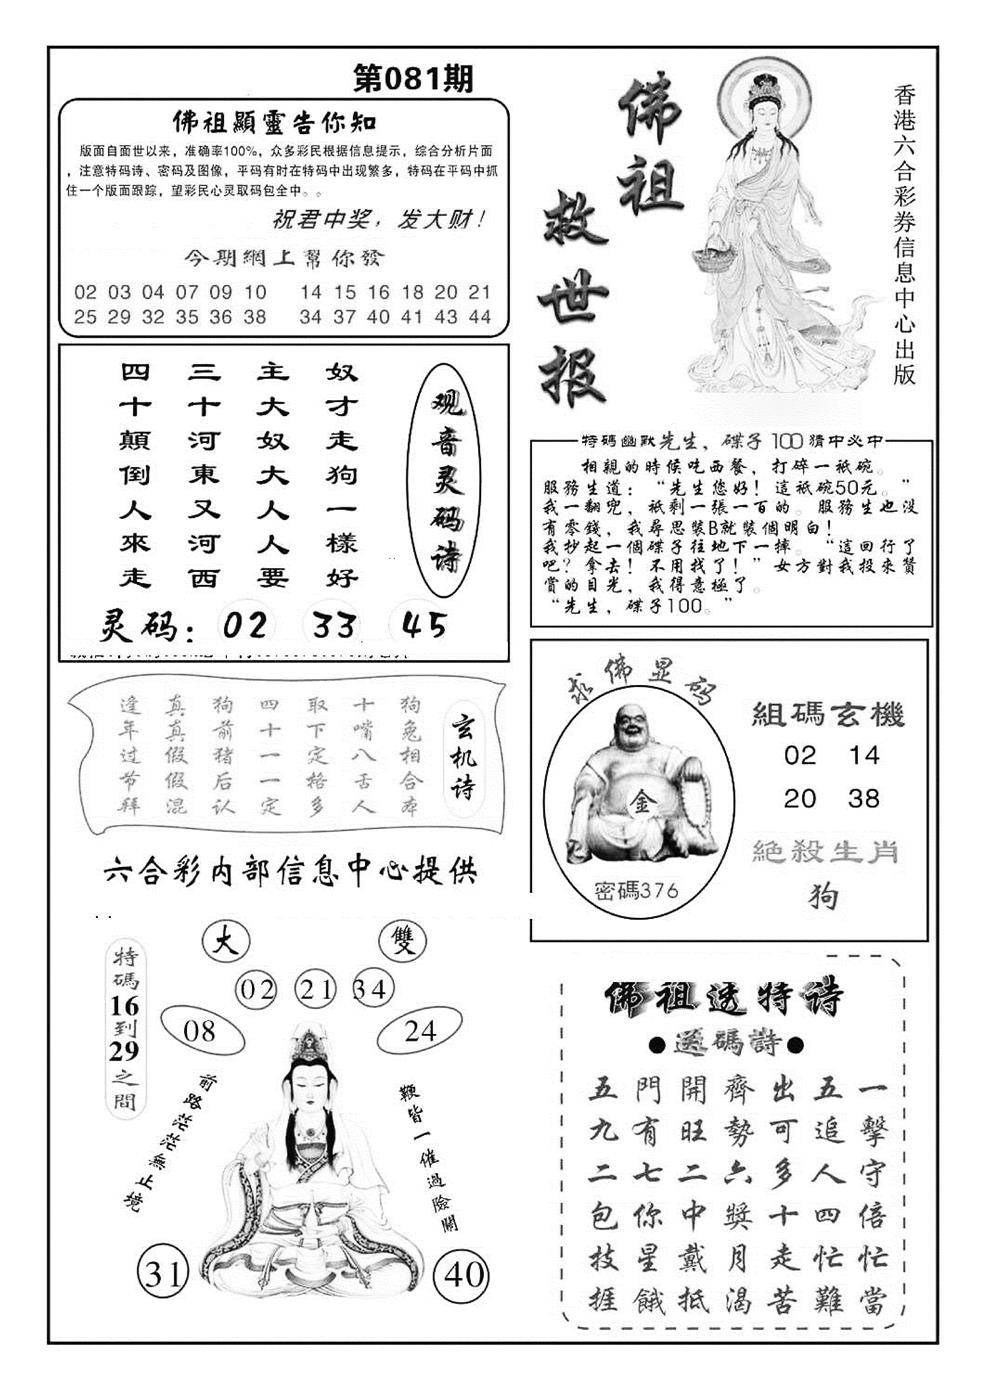 第081期
佛祖顯靈告你知
版面自面世以来，准确率100%，众多彩民根据信息提示，综合分析片面
，注意特码诗、密码及图像，平码有时在特码中出现繁多，特码在平码中抓
住一个版面跟踪，望彩民心灵取码包全中。。
祝君中奖，发大财！
今期網上幫你發
02 03 04 07 09 10 14 15 16 18 20 21
25 29 32 35 36 38 34 37 40 41 43 44
佛祖
救世报
香港六合彩券信息中心出版
观音灵码诗
奴才走狗一樣好
主大奴大人人要
三十河東又河西
四十顛倒人來走
灵码：02 33 45
特碼幽默先生，碟子100猜中必中
相親的時候吃西餐，打碎一祗碗。
服務生道：“先生您好！這祗碗50元。”
我一翻兜，祇剩一張一百的。服務生也没
有零錢，我尋思裝B就裝個明白！
我抄起一個碟子往地下一摔。“這回行了
吧？拿去！不用找了！”女方對我投來贊
賞的目光，我得意極了。
“先生，碟子100。”
玄机诗
狗兔相合本
十嘴八舌人
取下定格多
四十一一定
狗前猪后认
真真假假混
逢年过节拜
求佛显码
金
密碼376
組碼玄機
02 14
20 38
絕殺生肖
狗
六合彩内部信息中心提供
大 雙
02 21 34
08 24
特碼16到29之間
前路茫茫無止境
鞭皆一催過險關
31 40
佛祖透特诗
●送碼詩●
五門開齊出五一
九有旺勢可追擊
二七二六多人守
包你中獎十四倍
技星戴月走忙忙
捱餓抵渴苦難當